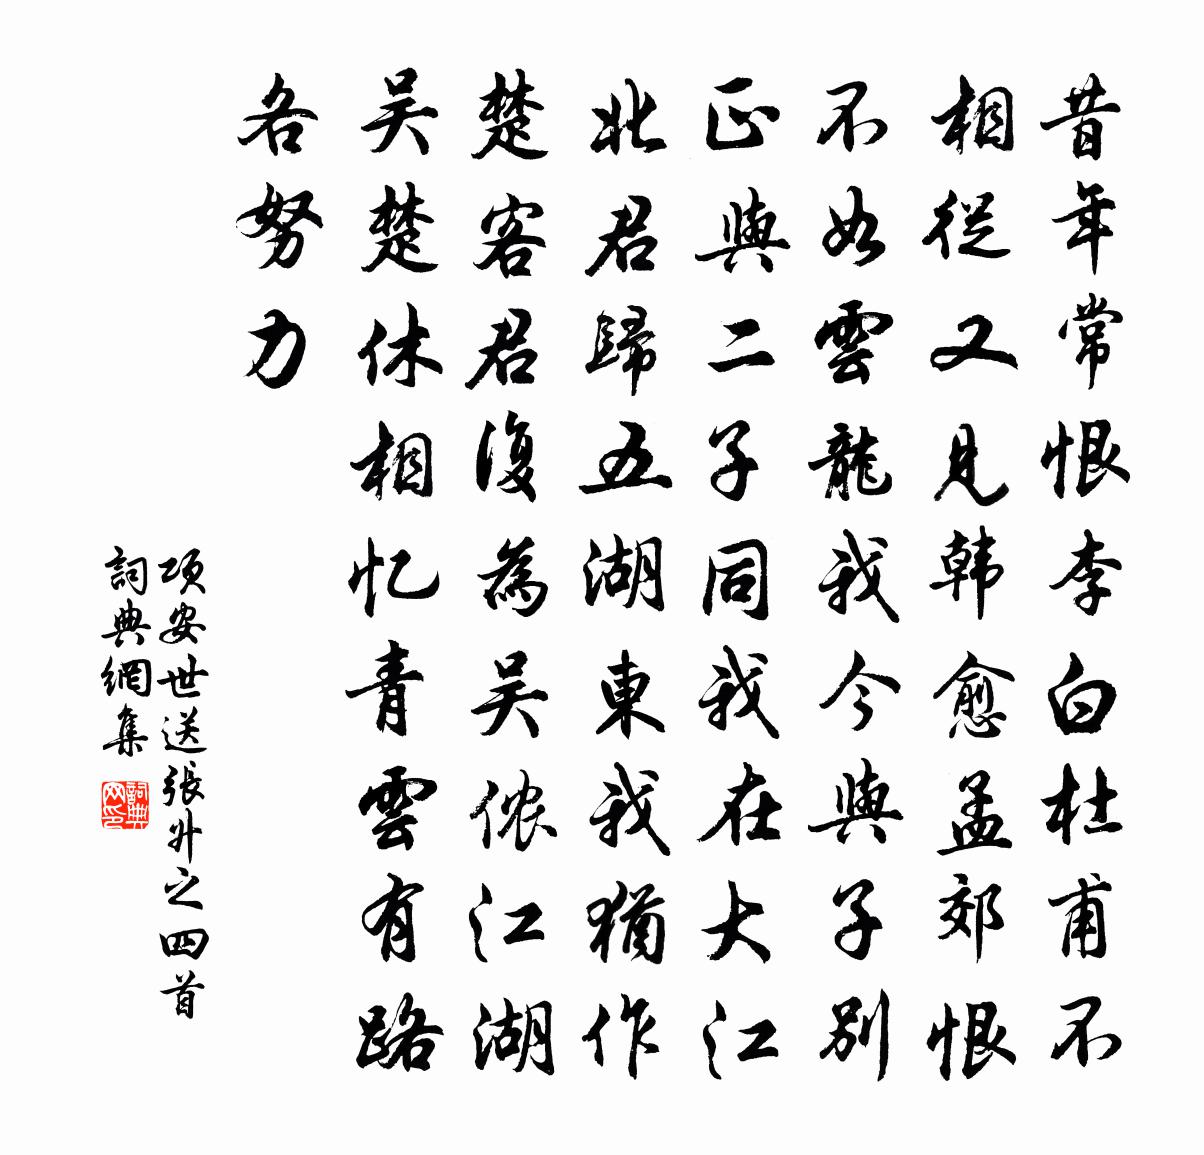 昔年常恨李白杜甫不
相從又見韩愈孟郊恨
不如雲龍我今與子别
正與二子同我在大江
北君歸五湖東我猶作
楚客君復為吴侬江湖
吴楚休相忆青雲有路
各努力
项安世送張升之四首
詞典網集
詞典
网印